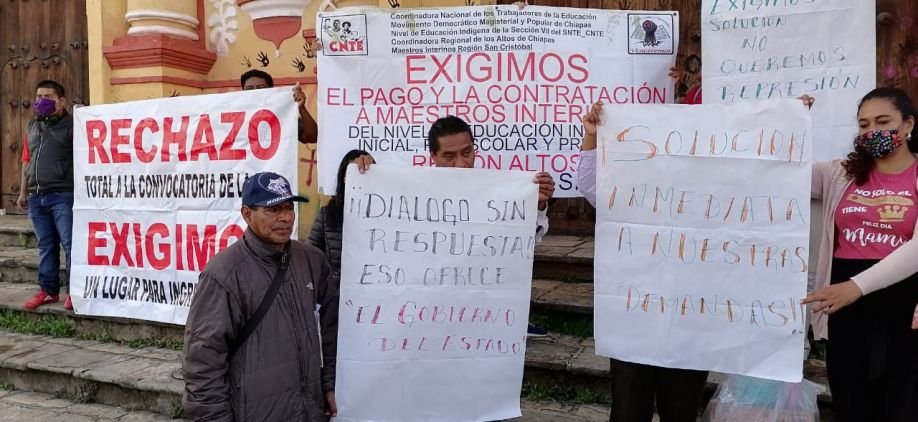 Coordinadora Nacional de los Trabajadores de la Educación
Movimiento Democrático Magisterial y Popular de Chiapas
Nivel de Educación Indígena de la Sección VII del SNTE_CNTE
Coordinadora Regional de los Altos de Chiapas
Maestros Interinos Región San Cristóbal
CNTE
Venceremos
EXIGIMOS
EL PAGO Y LA CONTRATACIÓN
A MAESTROS INTERI
DEL NIVEL EDUCACIÓN IN
INICIAL, PR SCOLAR Y PR
REGIÓN ALTOS
EXIGIMOS
SOLUCION
NO
QUEREMOS
REPRESIÓN
RECHAZO
TOTAL A LA CONVOCATORIA DE LA
EXIGIMO
UN LUGAR PARA INGR
¡¡DIALOGO SIN
RESPUESTA!
ESO OFRECE
"EL GOBIERNO
DEL ESTADO"
SOLUCION
INMEDIATA
A NUESTRAS
DEMANDAS!!
NO SOLO EL
TIENE
FELIZ DIA
Mamá